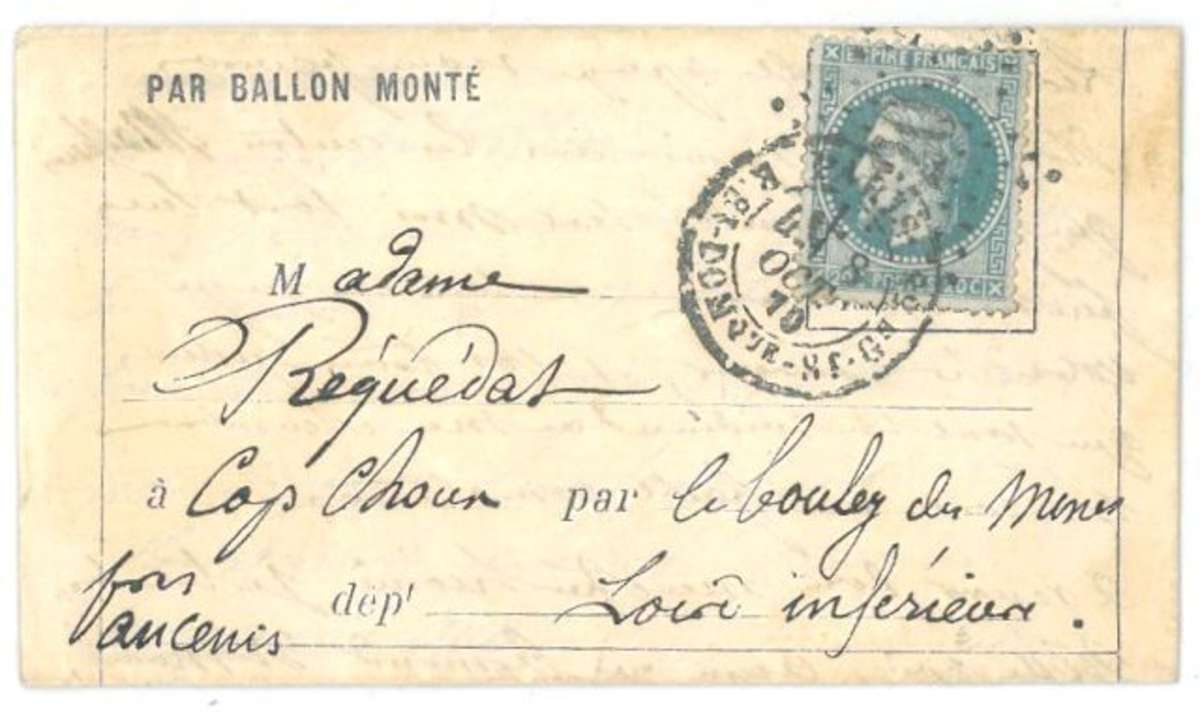 PAR BALLON MONTÉ
EMPIRE FRANÇAIS
R. St-DOMQUE-St-Gn
8
OCT
70
Madame
Réquédat
à Cop Choux par le bouley des Mines
près
ancenis
dépt Loire inférieure.